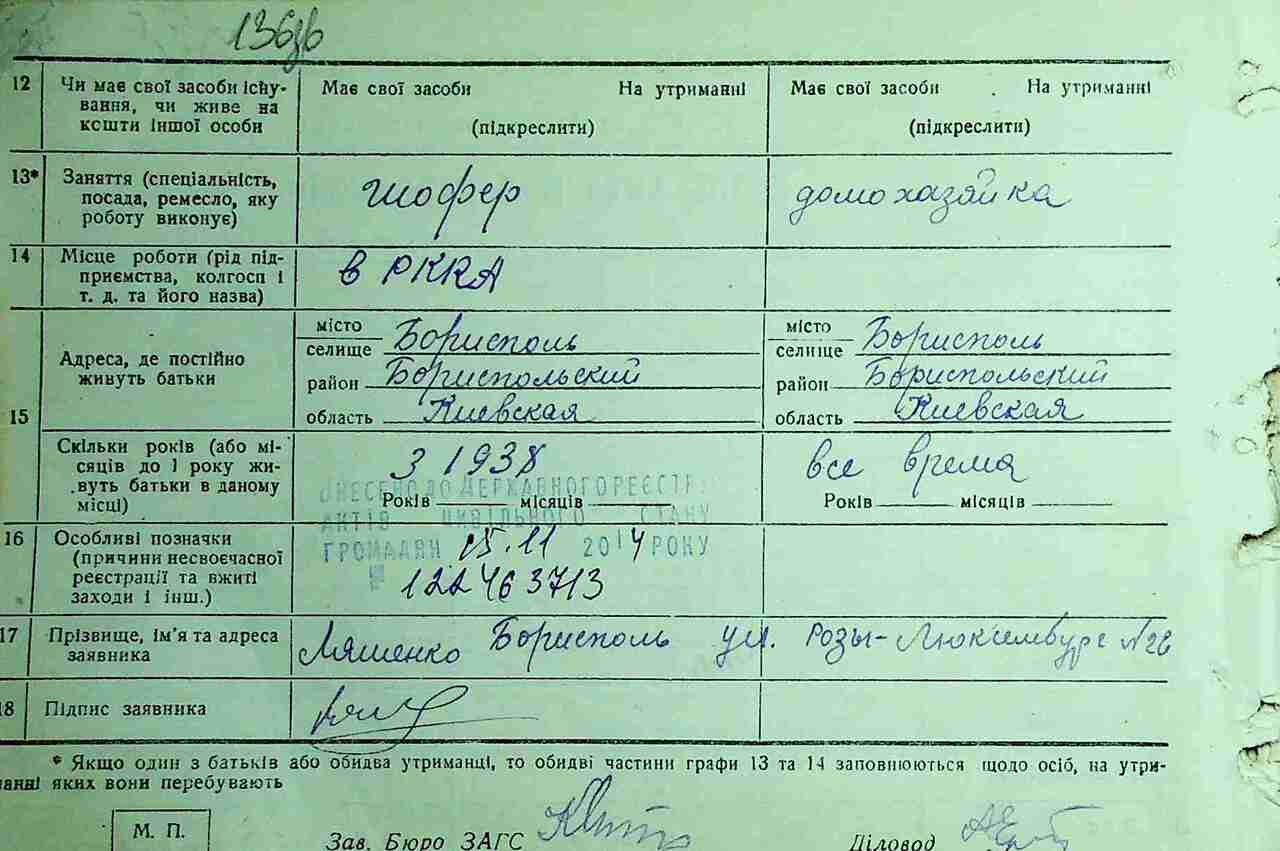 136зв
12 Чи має свої засоби існу-
вання, чи живе на
кошти іншої особи
Має свої засоби На утриманні
(підкреслити)
Має свої засоби На утриманні
(підкреслити)
13* Заняття (спеціальність,
посада, ремесло, яку
роботу виконує)
шофер
домохазяйка
14 Місце роботи (рід під-
приємства, колгосп і
т. д. та його назва)
в РККА
15
Адреса, де постійно
живуть батьки
місто
селище Борисполь
район Бориспольский
область Киевская
місто
селище Борисполь
район Бориспольский
область Киевская
Скільки років (або мі-
сяців до 1 року жи-
вуть батьки в даному
місці)
З 1938
Років місяців
все время
Років місяців
ВНЕСЕНО ДО ДЕРЖАВНОГО РЕЄСТРУ
АКТІВ ЦИВІЛЬНОГО СТАНУ
ГРОМАДЯН 15.11 2014 РОКУ
№ 122463713
16 Особливі позначки
(причини несвоєчасної
реєстрації та вжиті
заходи і інш.)
17 Прізвище, ім'я та адреса
заявника
Ляшенко Борисполь ул. Розы-Люксембург №26
18 Підпис заявника
* Якщо один з батьків або обидва утриманці, то обидві частини графи 13 та 14 заповнюються щодо осіб, на утри-
манні яких вони перебувають
М. П.
Зав. Бюро ЗАГС
Діловод